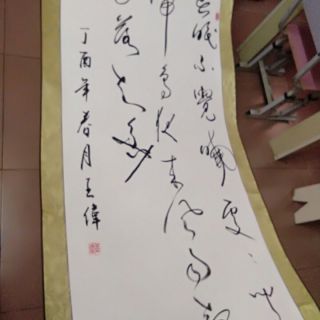 春眠不覺曉處々
啼鳥夜來風雨
落知多少
丁酉年春月王偉